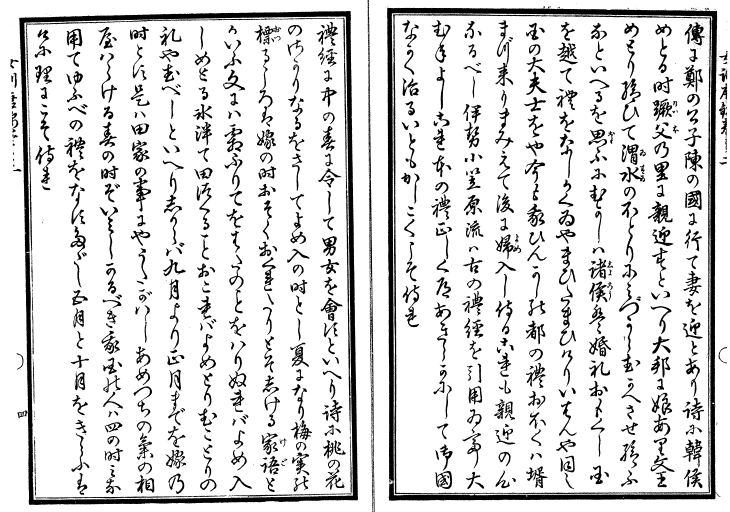 傳に鄭の公子陳の國に行て妻を迎とあり詩に韓侯
めとる時蹶父の里に親迎すといへり大邦に娘あり文王
めとり給ひて渭水のほとりにみづから出むかへさせ給ふ
なといへるを思ふにむかしハ諸侯も婚礼おもくし国
を越て禮をなしかくゐやまひたまひけりいはんや同し
国の大夫士をや今も家ひんかしの都の禮おほくハ壻
まづ来りまみえて後に婦入し侍るこれも親迎の心
なるべし伊勢小笠原流ハ古の禮經を引用ゐ大
むねよしこれ本の禮正しく道あきらかにして御國
ながく治るいともかしこくこそ侍れ
禮經に中の春に令して男女を會すといへり詩に桃の花
のさかりなるをさしてよめ入の時とし夏になり梅の実の
標るころハ嫁の時おそくおくれたりとそしける家語と
いふ文にハ霜ふりてをことをハりぬればよめ入
しめとる氷泮て田つくることおこればよめとりむことりの
礼や出べしといへりしからバ九月より正月までを嫁の
時とす是ハ田家の事にやうかゞハしあめつちの氣の相
屋ハらげる春の時ぞいとしかるべき家国の人ハ四の時ミな
用てゆふべの禮をなすべし五月と十月をきらふハ
理にこそ侍れ
四